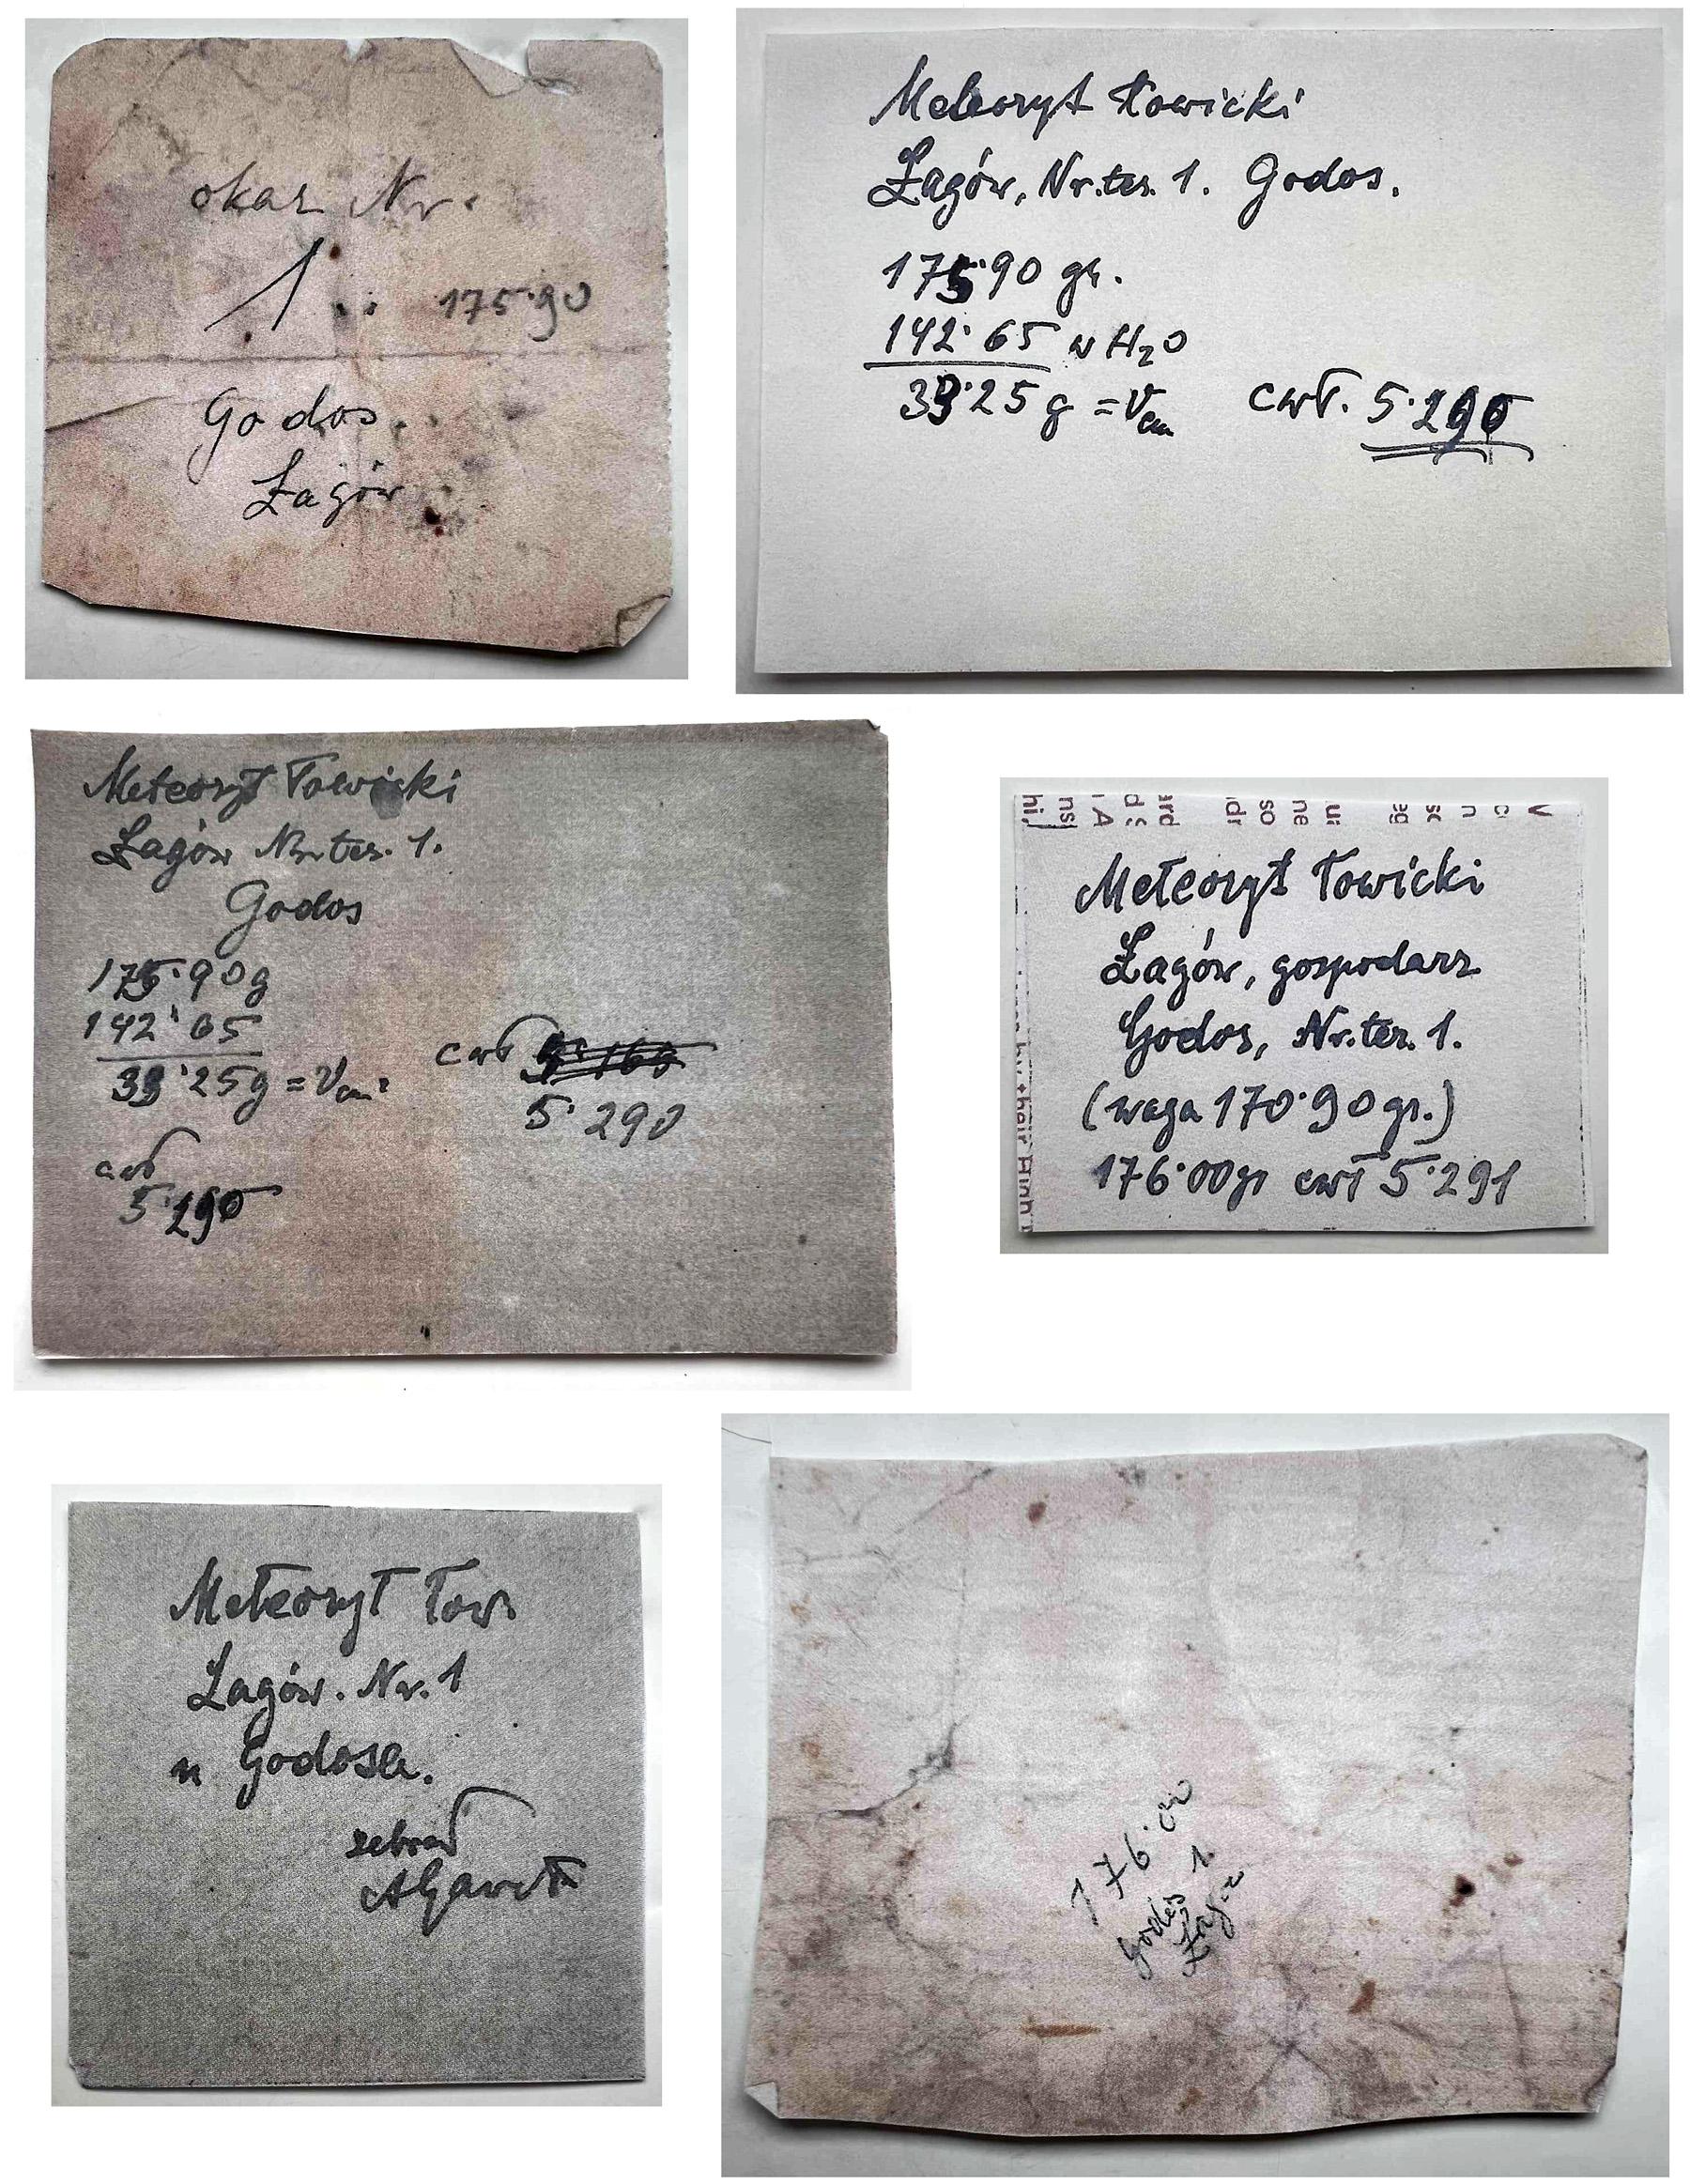 okaz Nr.
1. 175·90
Godos.
Łagów
Meteoryt Łowicki
Łagów, Nr. ter. 1. Godos.
175·90 gr.
142·65 w H₂O
33·25 g = Vcm
cwł. 5·290
Meteoryt Łowicki
Łagów Nr. ter. 1.
Godos
175·90 g
142·65
33·25 g = Vcm³
cwł
5·290
cwł
5·290
Meteoryt Łowicki
Łagów, gospodarz
Godos, Nr. ter. 1.
(waga 170·90 gr.)
176·00 gr cwł 5·291
Meteoryt Łow.
Łagów. Nr. 1
u Godosa.
zebrał
176·00
Godos 1.
Łagów